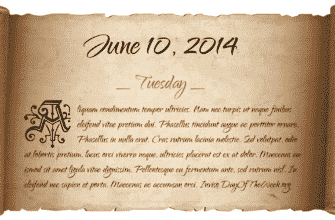 June 10, 2014
Tuesday
Aliquam condimentum tempor ultricies. Nam nec turpis ut neque finibus
eleifend vitae pretium dui. Phasellus tincidunt augue ac porttitor ornare.
Phasellus in nulla erat. Cras rutrum lacinia molestie. Sed volutpat, odio
at lobortis pretium, lacus orci viverra neque, ultricies placerat est ex at dolor. Maecenas eu
ismod sit amet ligula vitae dignissim. Pellentesque eu fermentum ante, sed rutrum nisl. In
eleifend nec sapien et porta. Maecenas ac accumsan orci. DayOfTheWeek.org